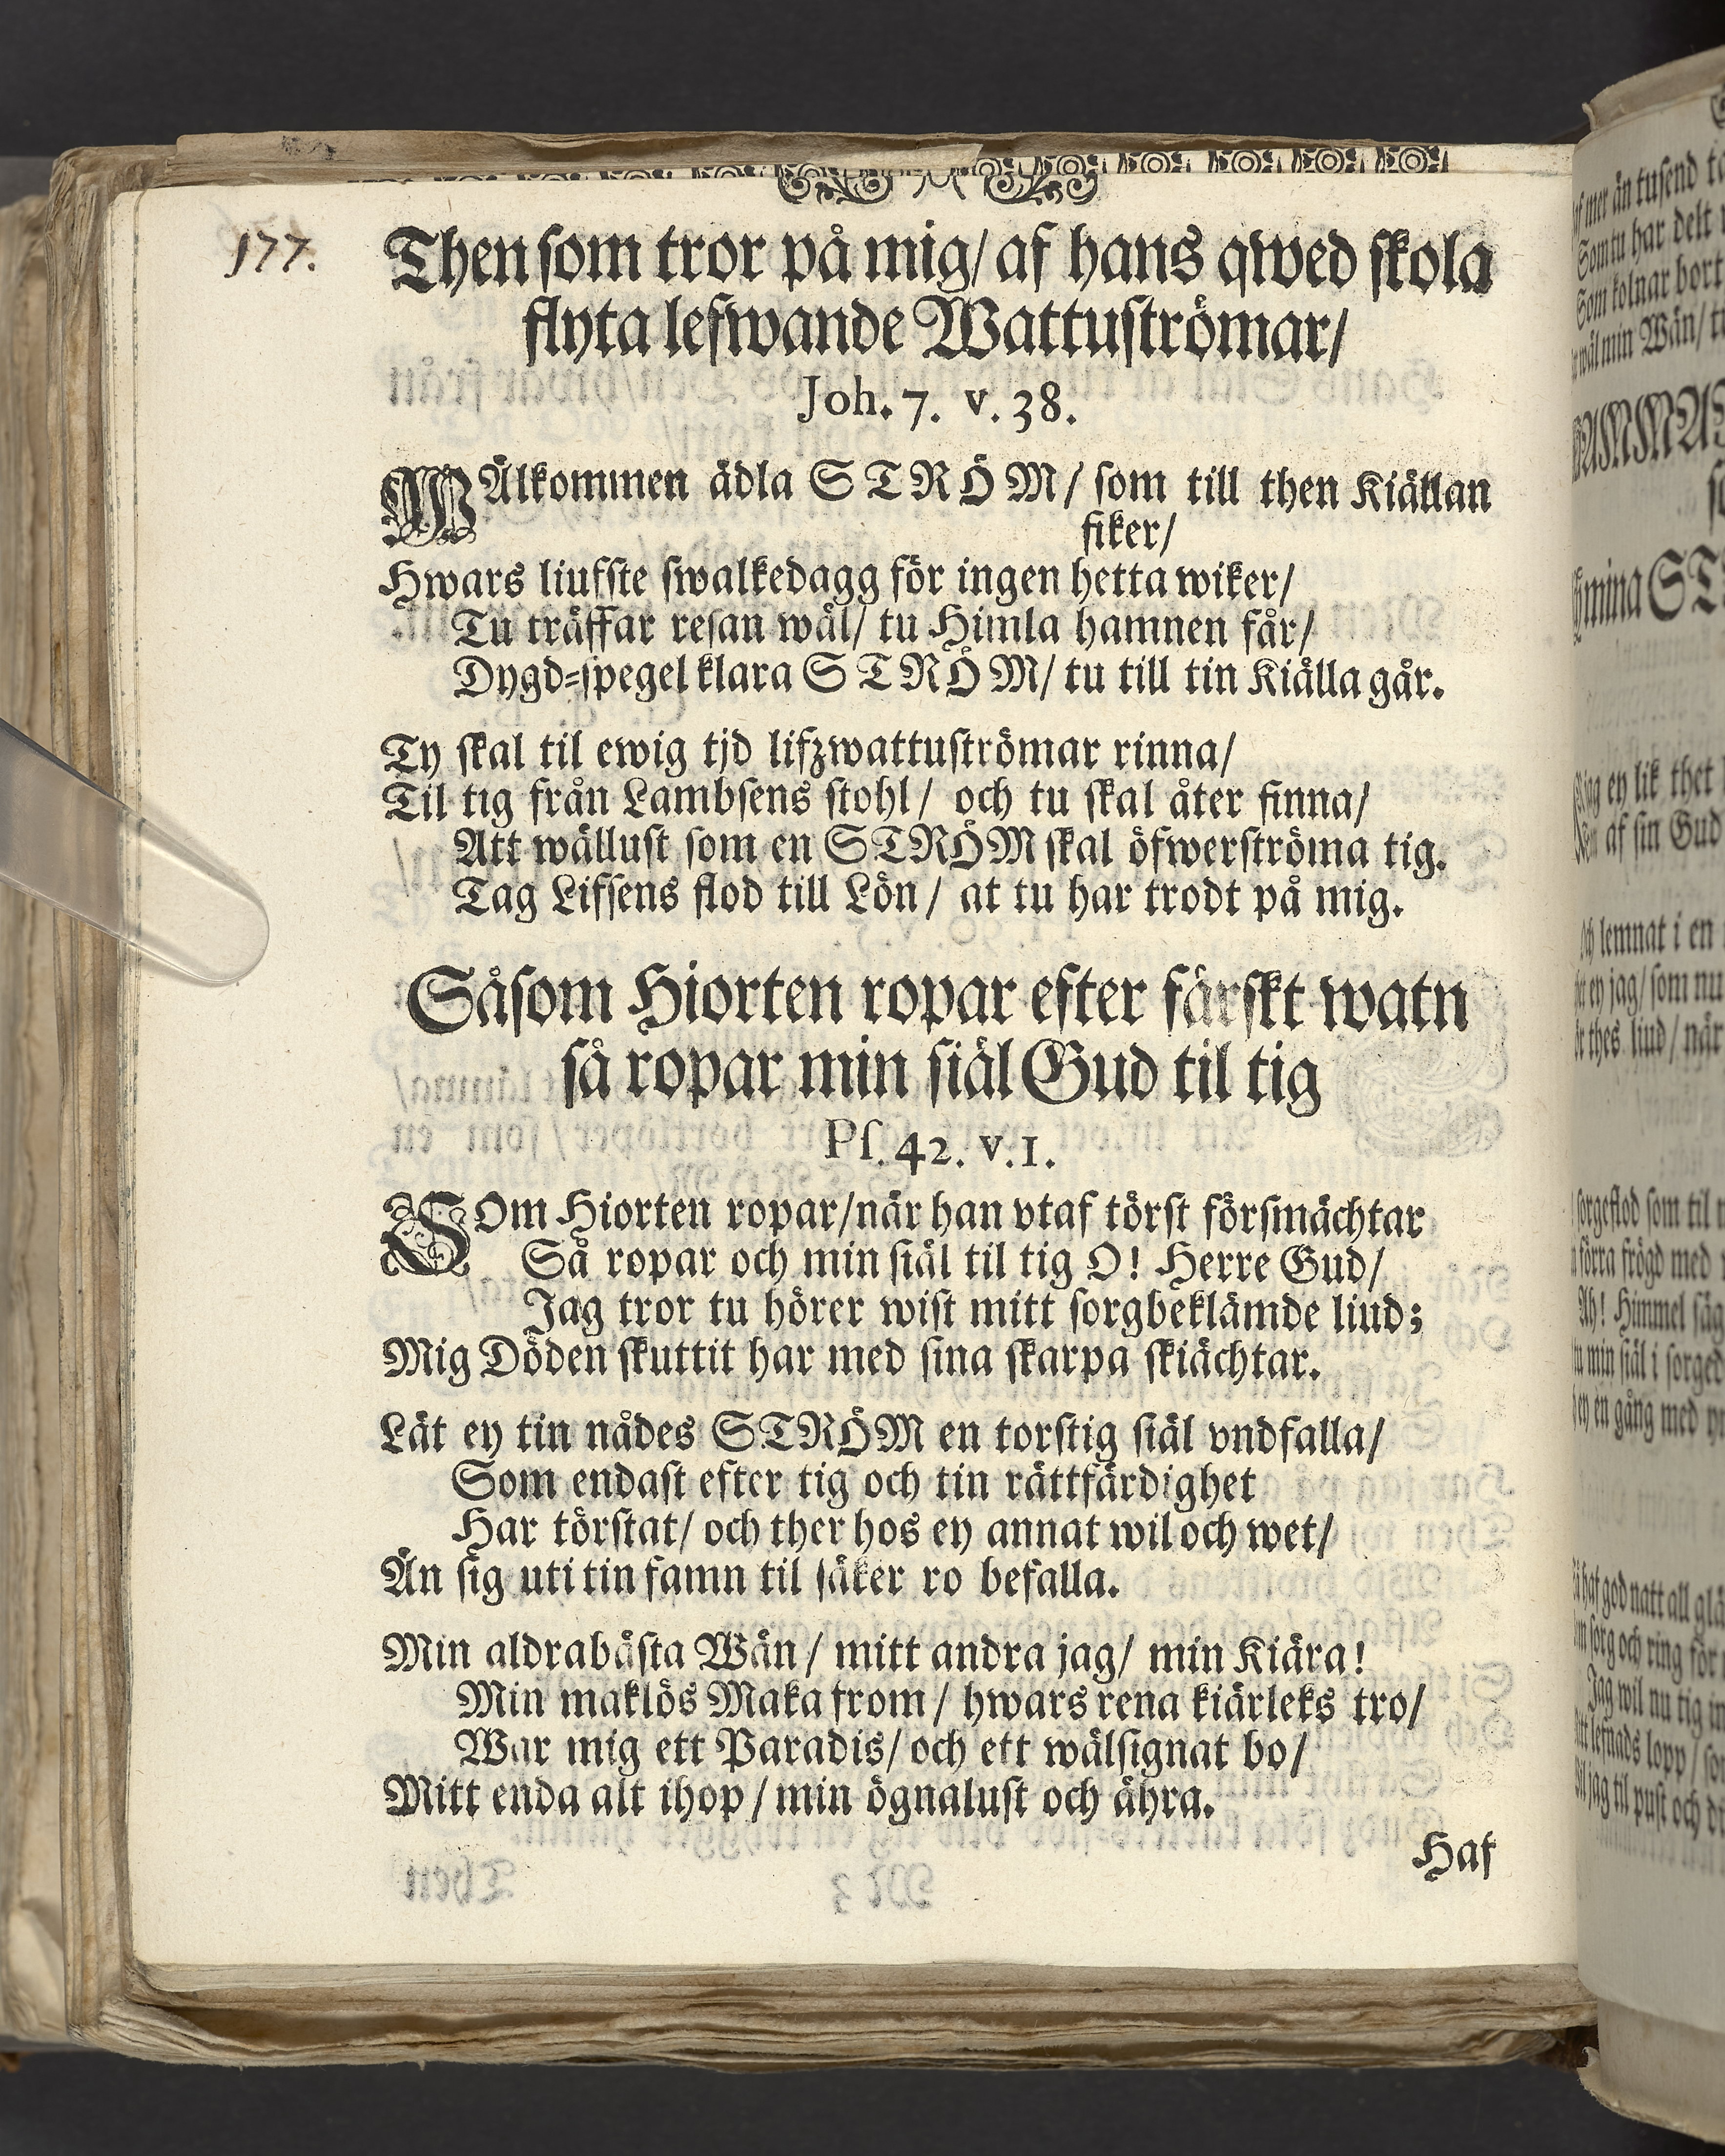 177.
Then som tror på mig/ af hans qwed skola
flyta lefwande Wattuströmar/
Joh. 7. v. 38.
WÄlkommen ädla STRÖM/ som till then Kiällan
fiker/
Hwars liufste swalkedagg för ingen hetta wiker/
Tu träffar resan wäl/ tu Himla hamnen får/
Dygd-spegel klara STRÖM/ tu till tin Kiälla går.
Ty skal til ewig tjd lifzwattuströmar rinna/
Til tig från Lambsens stohl/ och tu skal åter finna/
Att wällust som en STRÖM skal öfwerströma tig.
Tag Lifsens flod till Lön/ at tu har trodt på mig.
Såsom Hiorten ropar efter färskt watn
så ropar min siäl Gud til tig
Ps. 42. v. 1.
SOm Hiorten ropar/ när han vtaf törst försmächtar
Så ropar och min siäl til tig O! Herre Gud/
Jag tror tu hörer wist mitt sorgbeklämde liud;
Mig Döden skuttit har med sina skarpa skiächtar.
Lät ey tin nådes STRÖM en torstig siäl vndfalla/
Som endast efter tig och tin rättfärdighet
Har törstat/ och ther hos ey annat wil och wet/
Än sig uti tin famn til säker ro befalla.
Min aldrabästa Wän/ mitt andra jag/ min Kiära!
Min maklös Maka from/ hwars rena kiärleks tro/
War mig ett Paradis/ och ett wälsignat bo/
Mitt enda alt ihop/ min ögnalust och ähra.
Haf